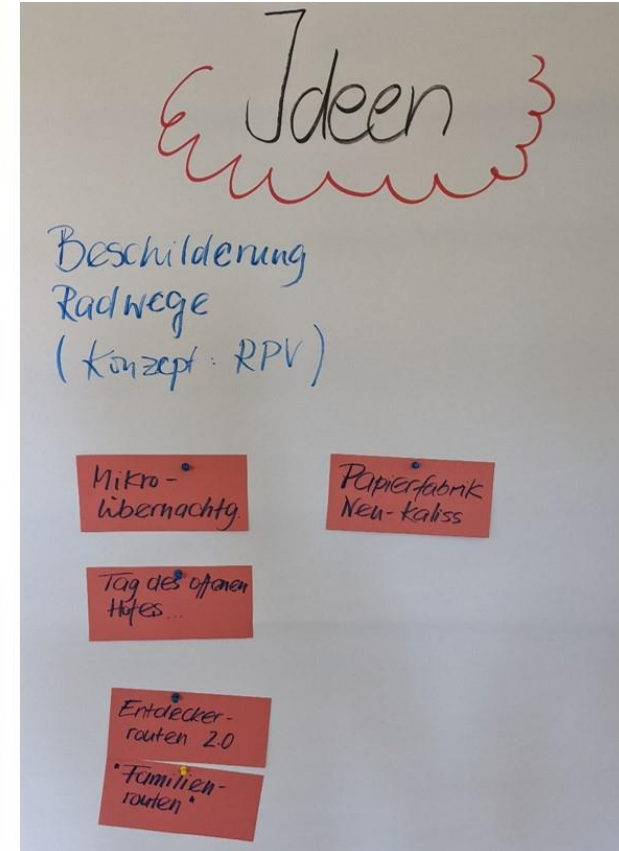 Ideen
Beschilderung
Radwege
(Konzept: RPV)
Mikro-
übernachtg.
Papierfabrik
Neu-Kaliss
Tag des offenen
Hofes...
Entdecker-
routen 2.0
"Familien-
routen"